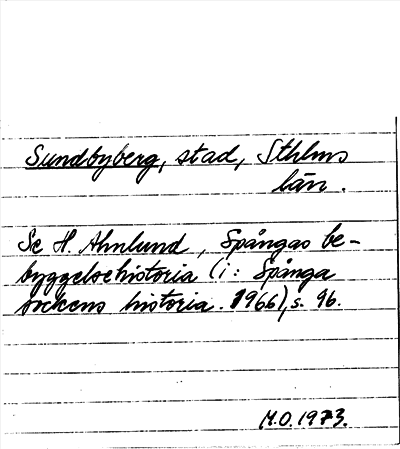 Sundbyberg, stad, Sthlms
län.
Se H. Ahnlund, Spångas be-
byggelsehistoria (i: Spånga
sockens historia. 1966), s. 96.
M.O. 1973.